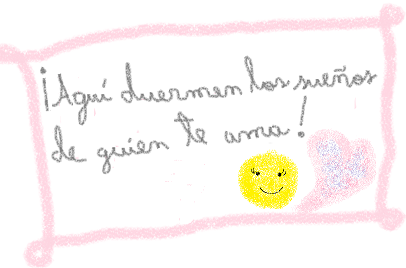 ¡Aquí duermen los sueños
de quien te ama!